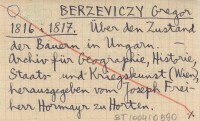 BERZEVICZY Gregor
1816 i 1817. Über den Zustand
der Bauern in Ungarn. —
Archiv für Geographie, Historie,
Staats- und Kriegskunst (Wien,
herausgegeben von Joseph Frei-
herr Hormayr zu Horten.